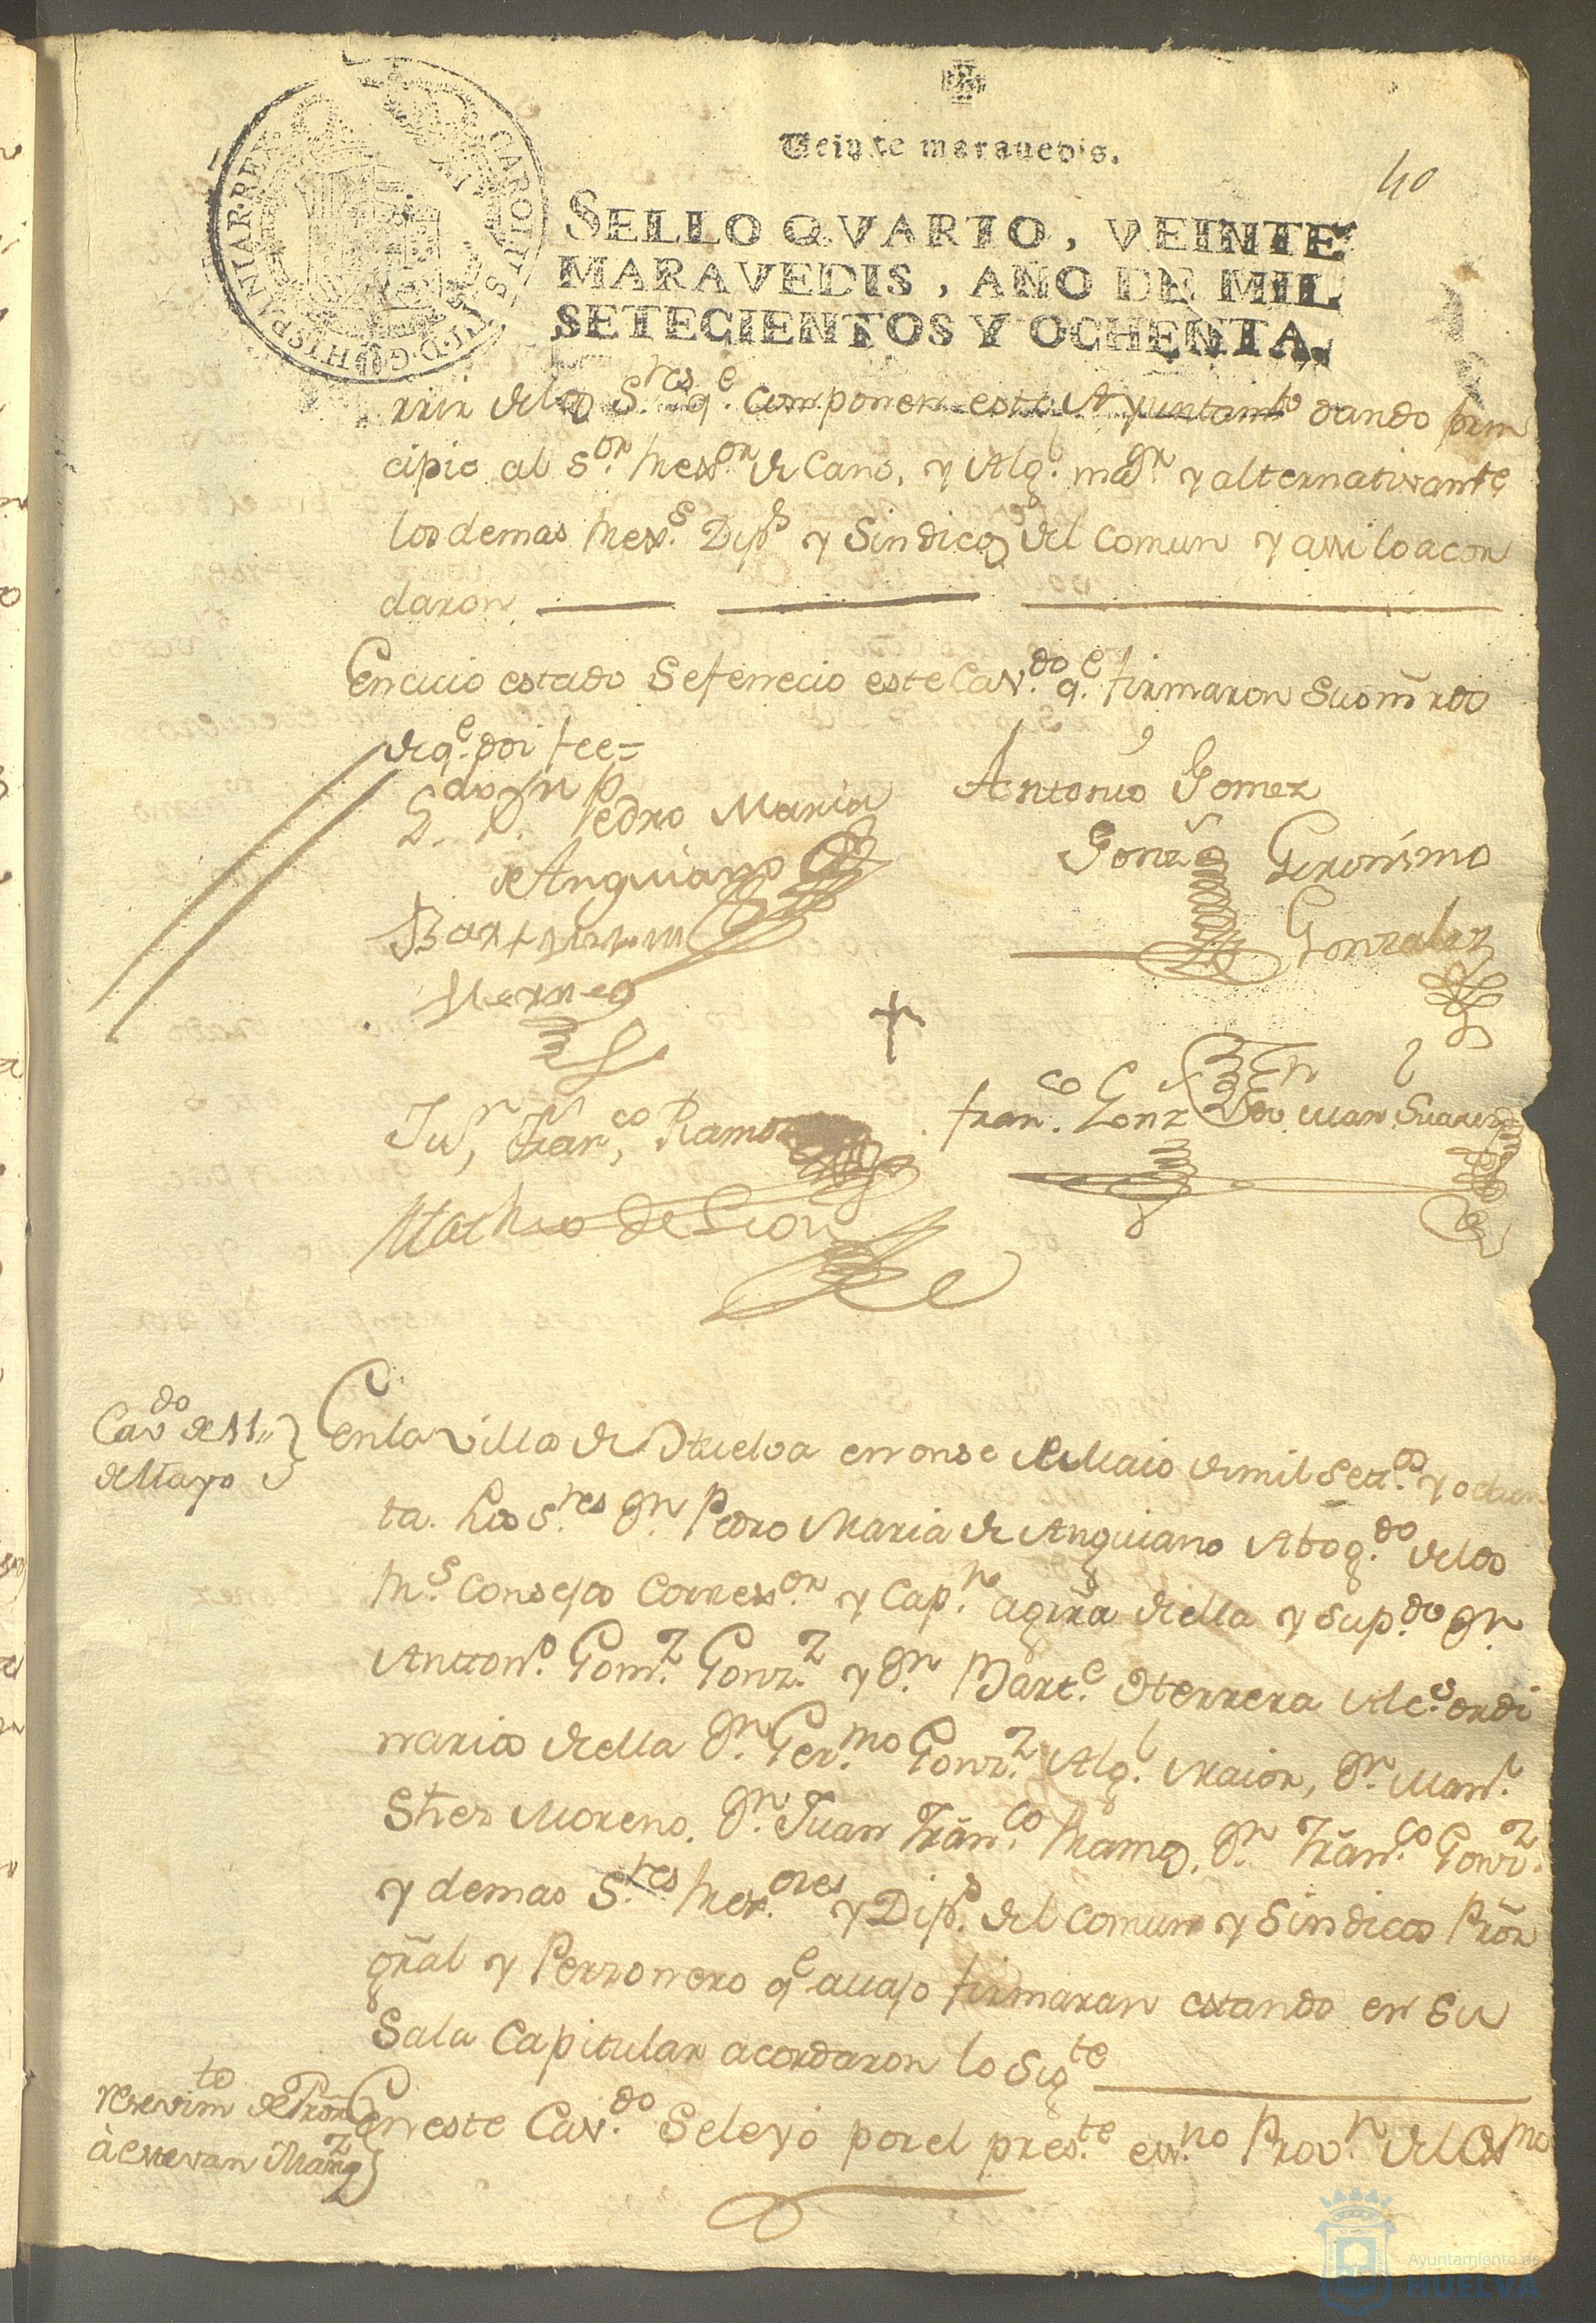 Veinte maravedis.
40
SELLO QVARTO, VEINTE
MARAVEDIS, AÑO DE MIL
SETECIENTOS Y OCHENTA.
CAROLUS III·D·G·HISPANIAR·REX
rrir de los S.res q.e componen este Ayuntam.to dando prin
cipio al S.or Rex.or de Cano, y Alg.l mayor y alternativam.te
los demas Rex.s Dip.s y Sindicos del Comun y assi lo acor
daron
En cuio estado Sefenecio este Cav.do q.e firmaron Sus m.rdes
de q.e doi fee=
L.do Dn Pedro Maria
de Anguiano
Antonio Gomez
Gonz.z
Geronimo
Gonzalez
Ju.n Fran.co Ramos
Fran.co Gonz
Juan Suarez
Mathias de Leon
Cav.do de 11,,
de Mayo
En la villa de Huelva en onse de Maio de mil Sett.os y ochen
ta. Los S.res Dn. Pedro Maria de Anguiano Abog.do de los
R.s Consejos Correx.or y Cap.n aguerra de ella y Sup.do Dn.
Antton.o Gom.z Gonz.z y Dn. Bart.e Herrera Alc.s ordi
narios de ella Dn. Ger.mo Gonz.z Alg.l Maior, Dn. Man.l
Shez Moreno. Dn. Juan Fran.co Ramos, Dn. Fran.co Gonz.z
y demas S.res Rex.ores y Dip.s del Comun y Sindicos Pror
gral y Perzonero q.e auajo firmaran estando en Su
Sala Capitular acordaron lo Sig.te
Resevim.to de Pror
à Estevan Marq.z
En este Cav.do Seleyó por el pres.te ess.no Prov.n del Ex.mo
Ayuntamiento de
HUELVA